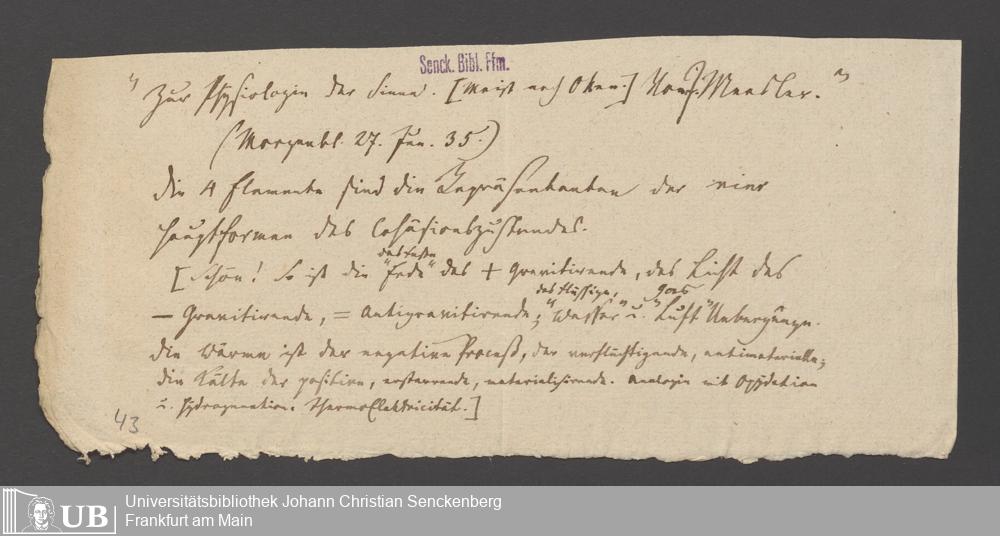 Senck. Bibl. Ffm.
"Zur Physiologie der Sinne. [Meist nach Oken.] Von Mensler."
(Morgenbl. 27. Jun. 35.)
Die 4 Elemente sind die Repräsentanten der vier
Hauptformen des Cohäsionszustandes.
[Schön! So ist die "Erde" das + Gravitirende, das Licht das
das Feste
− Gravitirende, = Antigravitirende; "Wasser" u. "Luft" Uebergänge.
das Flüssige, Gas
Die Wärme ist der negative Proceß, der verflüchtigende, antimaterielle;
die Kälte der positive, erstarrende, materialisirende. Analogie mit Oxydation
u. Hydrogenation. ThermoElektricität.]
43
UB
Universitätsbibliothek Johann Christian Senckenberg
Frankfurt am Main